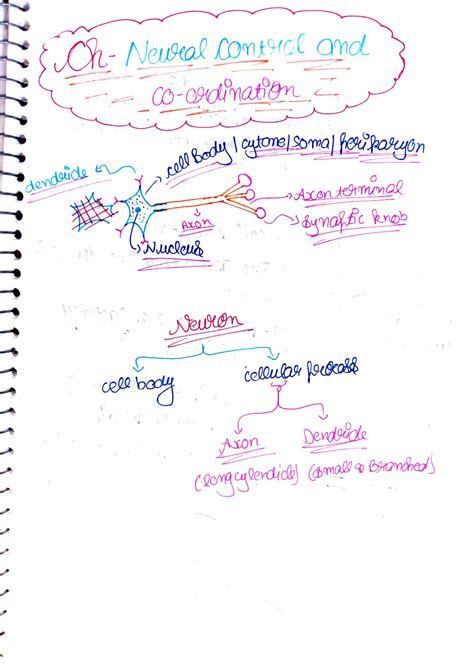 Ch- Neural Control and
co-ordination
cell Body / cytone / soma / perikaryon
dendride
Axon terminal
Axon
Synaptic knob
Nucleus
Neuron
cell body
cellular process
Axon
Dendride
(long cylendide)
(small & Branched)